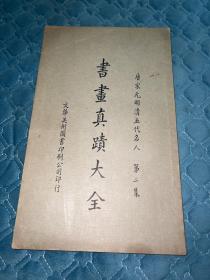 唐宋元明清五代名人 第二集
書畫真蹟大全
文華美術圖書印刷公司印行